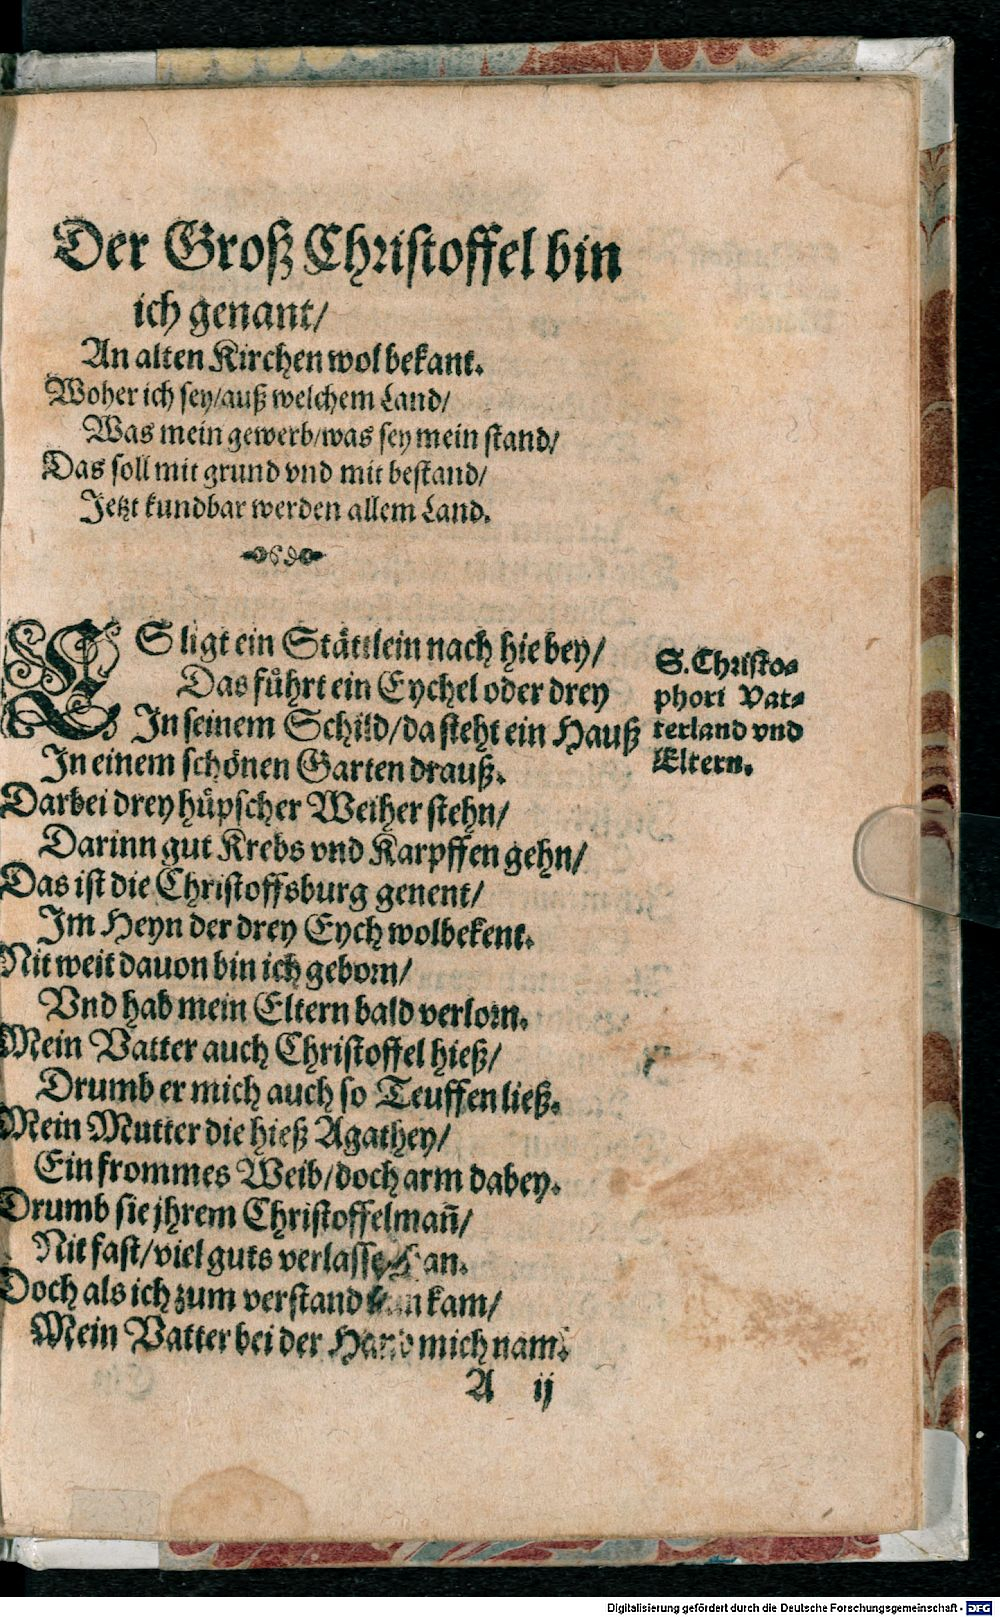 Der Groß Christoffel bin
ich genant/
An alten Kirchen wol bekant.
Woher ich sey/auß welchem Land/
Was mein gewerb/was sey mein stand/
Das soll mit grund vnd mit bestand/
Jetzt kundbar werden allem Land.
ES ligt ein Stättlein nach hie bey/
Das fůhrt ein Eychel oder drey
In seinem Schild/da steht ein Hauß
In einem schönen Garten drauß.
S. Christo-
phori Vat-
terland vnd
Eltern.
Darbei drey hüpscher Weiher stehn/
Darinn gut Krebs vnd Karpffen gehn/
Das ist die Christoffsburg genent/
Im Heyn der drey Eych wolbekent.
Nit weit dauon bin ich geborn/
Vnd hab mein Eltern bald verlorn.
Mein Vatter auch Christoffel hieß/
Drumb er mich auch so Teuffen ließ.
Mein Mutter die hieß Agathey/
Ein frommes Weib/doch arm dabey.
Drumb sie jhrem Christoffelmañ/
Nit fast/viel guts verlasse an.
Doch als ich zum verstand kam/
Mein Vatter bei der Hand mich nam.
A ij
Digitalisierung gefördert durch die Deutsche Forschungsgemeinschaft - DFG